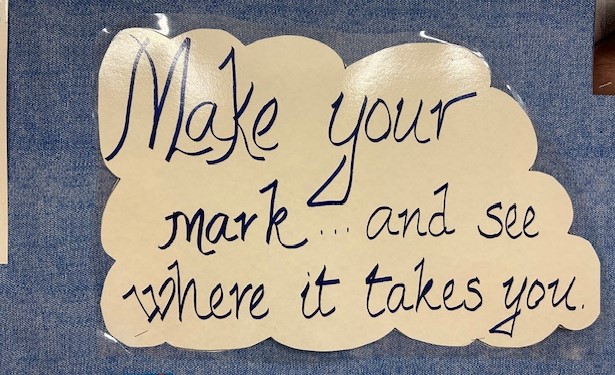 Make your
mark... and see
where it takes you.